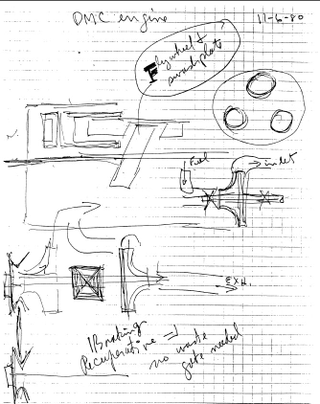 DMC engine
11-6-80
Flywheel &
swashplate
Fuel
inlet
EXH.
Braking
Recuperative ⇒
no waste
gate needed